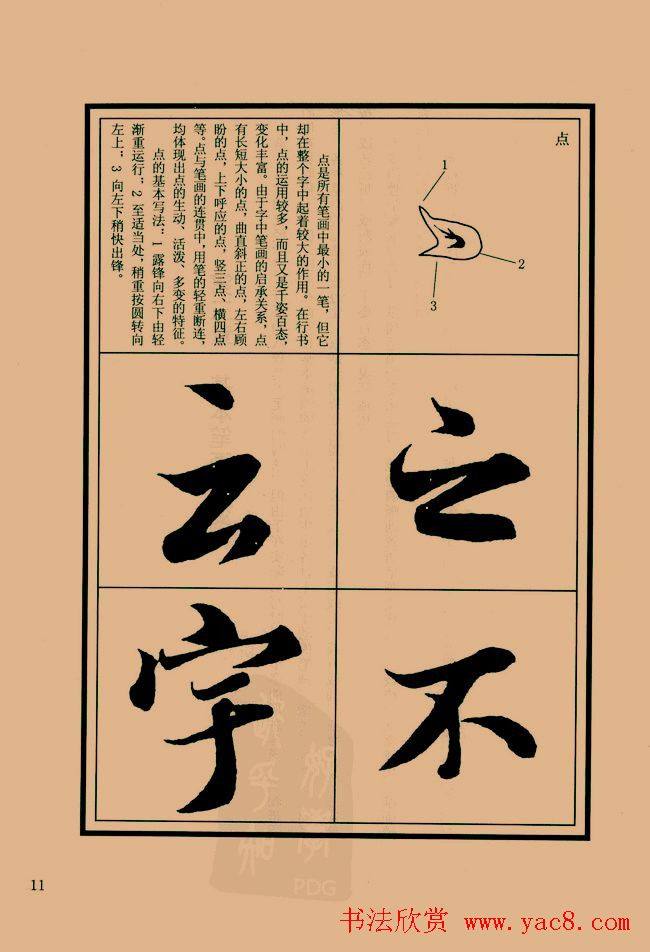 点
1
2
3
点是所有笔画中最小的一笔，但它
却在整个字中起着较大的作用。在行书
中，点的运用较多，而且又是千姿百态，
变化丰富。由于字中笔画的启承关系，点
有长短大小的点，曲直斜正的点，左右顾
盼的点，上下呼应的点，竖三点、横四点
等。点与笔画的连贯中，用笔的轻重断连，
均体现出点的生动、活泼、多变的特征。
点的基本写法：1 露锋向右下由轻
渐重运行；2 至适当处，稍重按圆转向
左上；3 向左下稍快出锋。
之
不
云
宇
PDG
11
书法欣赏 www.yac8.com